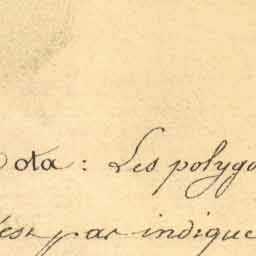 ota : Les polygo
est par indique